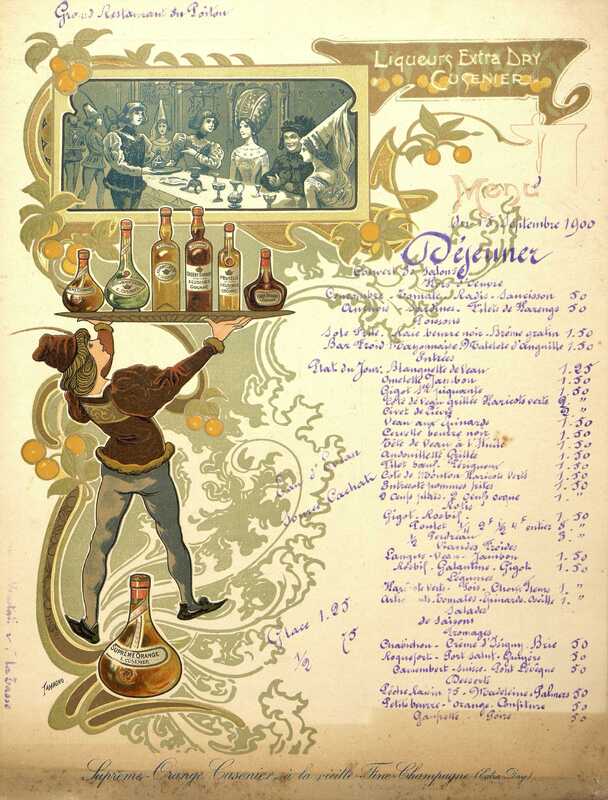 Grand Restaurant du Poitou
Liqueurs Extra Dry
Cusenier
Menu
Septembre 1900
Déjeuner
Couvert de Salons
Hors d'œuvre
Concombre - Tomate - Radis - Saucisson 50
Anchois - Sardines - Filets de Harengs 50
Poissons
Sole Frite - Raie beurre noir - Brême gratin 1.50
Bar Froid Mayonnaise Matelote d'anguille 1.50
Entrées
Plat du Jour: Blanquette de Veau 1.25
Omelette Jambon 1.50
Gigot piquante 1.50
Côte de Veau Grillée Haricots verts 2 "
Civet de Lièvre "
Veau aux Epinards 1.50
Cervelle beurre noir 1.50
Tête de Veau à l'huile 1.50
Andouillette Grillée 1.50
Filet bœuf Périgueux 1.50
Côte de Mouton Haricots verts 1.50
Entrecôte pommes frites 1.50
2 Œufs plats. 2 Œufs coque 1 "
Rotis
Gigot. Rosbif. 1.50
Poulet 1/4 2f 1/2 4f entier 8. "
1/2 Perdreau 3. "
Viandes Froides
Langue - Veau - Jambon 1.50
Rosbif - Galantine - Gigot 1.50
Légumes
Haricots verts - Pois - Choux 1 "
Tomates - Epinards - Oseille 1. "
Salades
de Saisons
Fromages
Chabichou - Crème d'Isigny - Brie 50
Roquefort - Port Salut - Gruyère 50
Camembert - Suisse - Pont Levêque 50
Desserts
Pêche Raisin 75 - Madeleine - Palmers 50
Petits beurre - Orange - Confiture 50
Gaufrette - Poire 50
Glace 1.25
1/2 75
Suprême Orange
E. Cusenier
Tamagno
Suprême-Orange Cusenier, à la vieille Fine-Champagne (Extra-Dry)